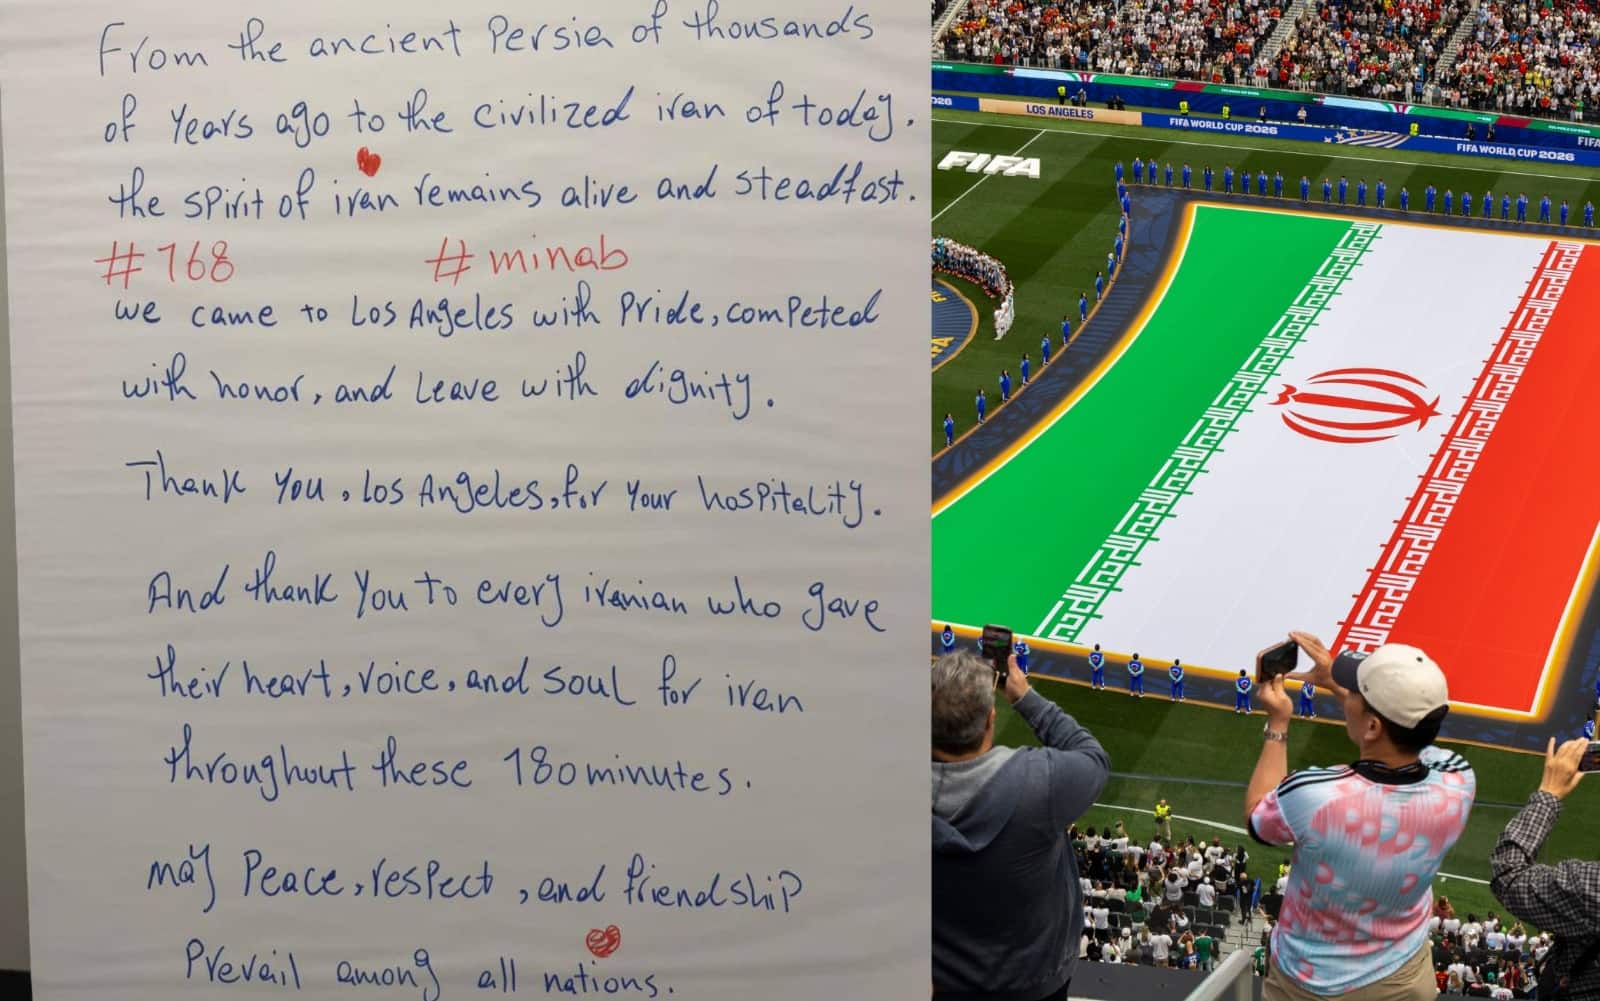 From the ancient Persia of thousands
of years ago to the civilized iran of today.
the spirit of iran remains alive and steadfast.
#168 #minab
we came to Los Angeles with Pride, competed
with honor, and Leave with dignity.
Thank you, Los Angeles, for your hospitality.
And thank you to every iranian who gave
their heart, voice, and soul for iran
throughout these 180 minutes.
may Peace, respect, and friendship
Prevail among all nations.
026
LOS ANGELES
FIFA WORLD CUP 2026
FIFA WORLD CUP 2026
FIFA
FIFA